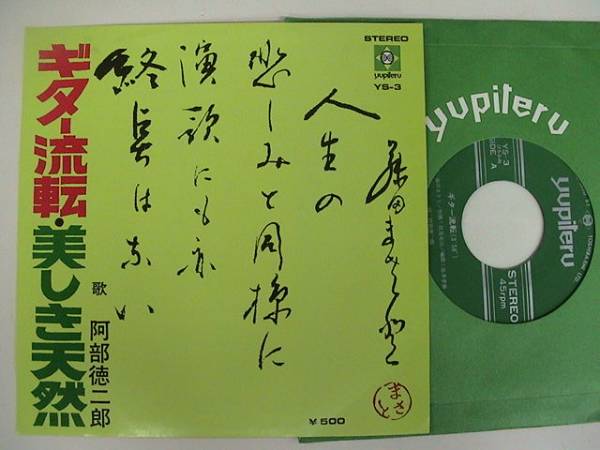 STEREO
yupiteru
YS-3
ギター流転・美しき天然
歌 阿部徳二郎
藤田まさと
人生の
悲しみと同様に
演歌にも亦
終点はない
まさと
¥500
yupiteru
yupiteru
YS-3
SIDE A
ギター流転
STEREO
45rpm